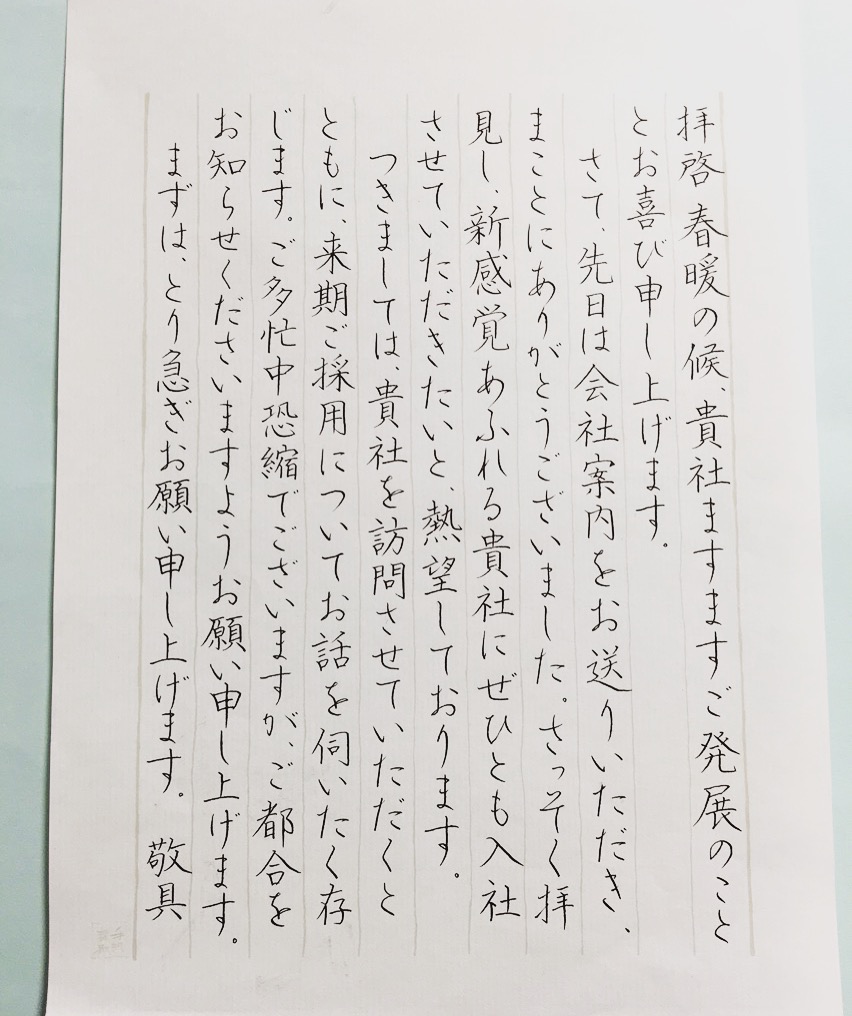 拝啓 春暖の候、貴社ますますご発展のこと
とお喜び申し上げます。
さて、先日は会社案内をお送りいただき、
まことにありがとうございました。さっそく拝
見し、新感覚あふれる貴社にぜひとも入社
させていただきたいと、熱望しております。
つきましては、貴社を訪問させていただくと
ともに、来期ご採用についてお話を伺いたく存
じます。ご多忙中恐縮でございますが、ご都合を
お知らせくださいますようお願い申し上げます。
まずは、とり急ぎお願い申し上げます。 敬具